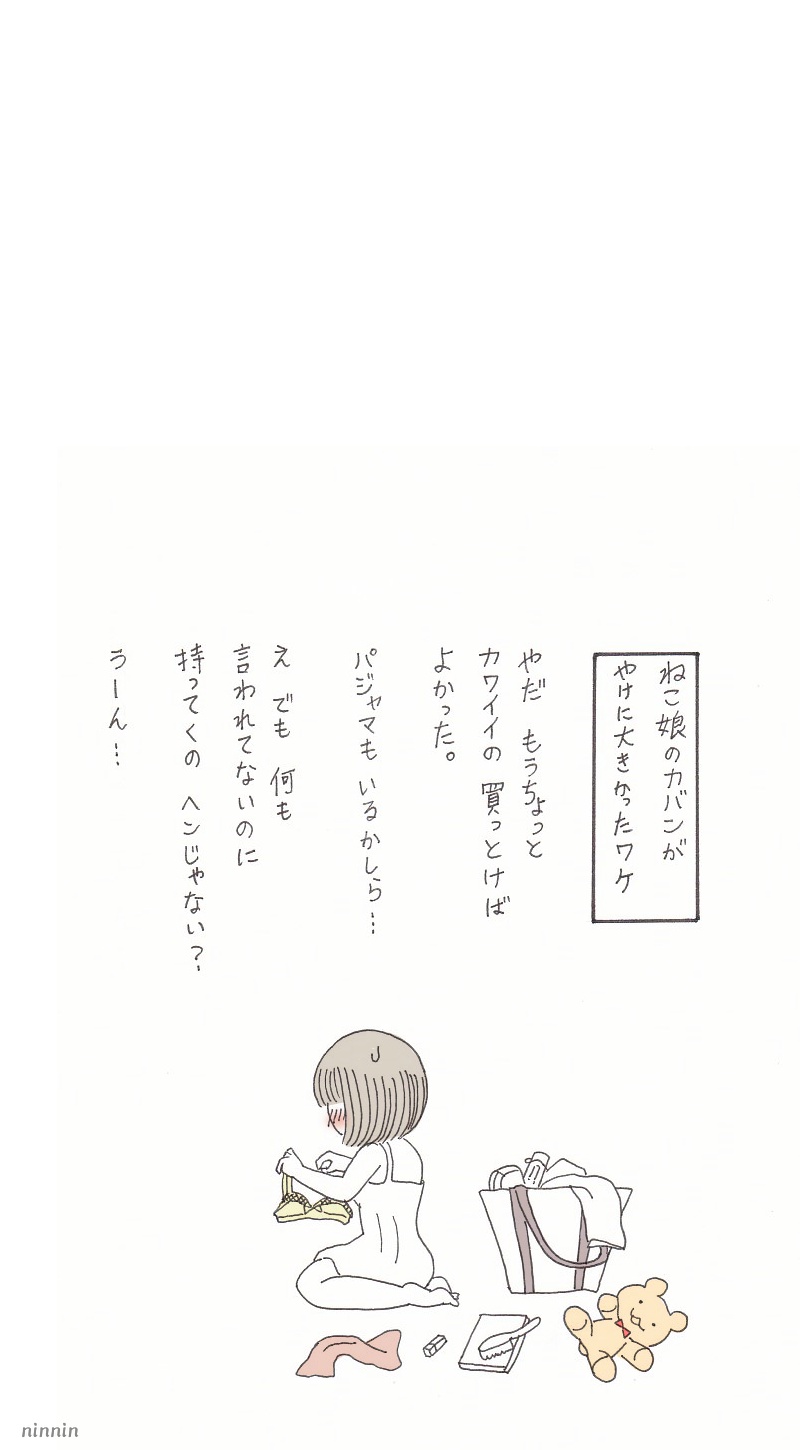 ねこ娘のカバンが
やけに大きかったワケ
やだ もうちょっと
カワイイの 買っとけば
よかった。
パジャマも いるかしら…
え でも 何も
言われてないのに
持ってくの ヘンじゃない?
うーん…
ninnin